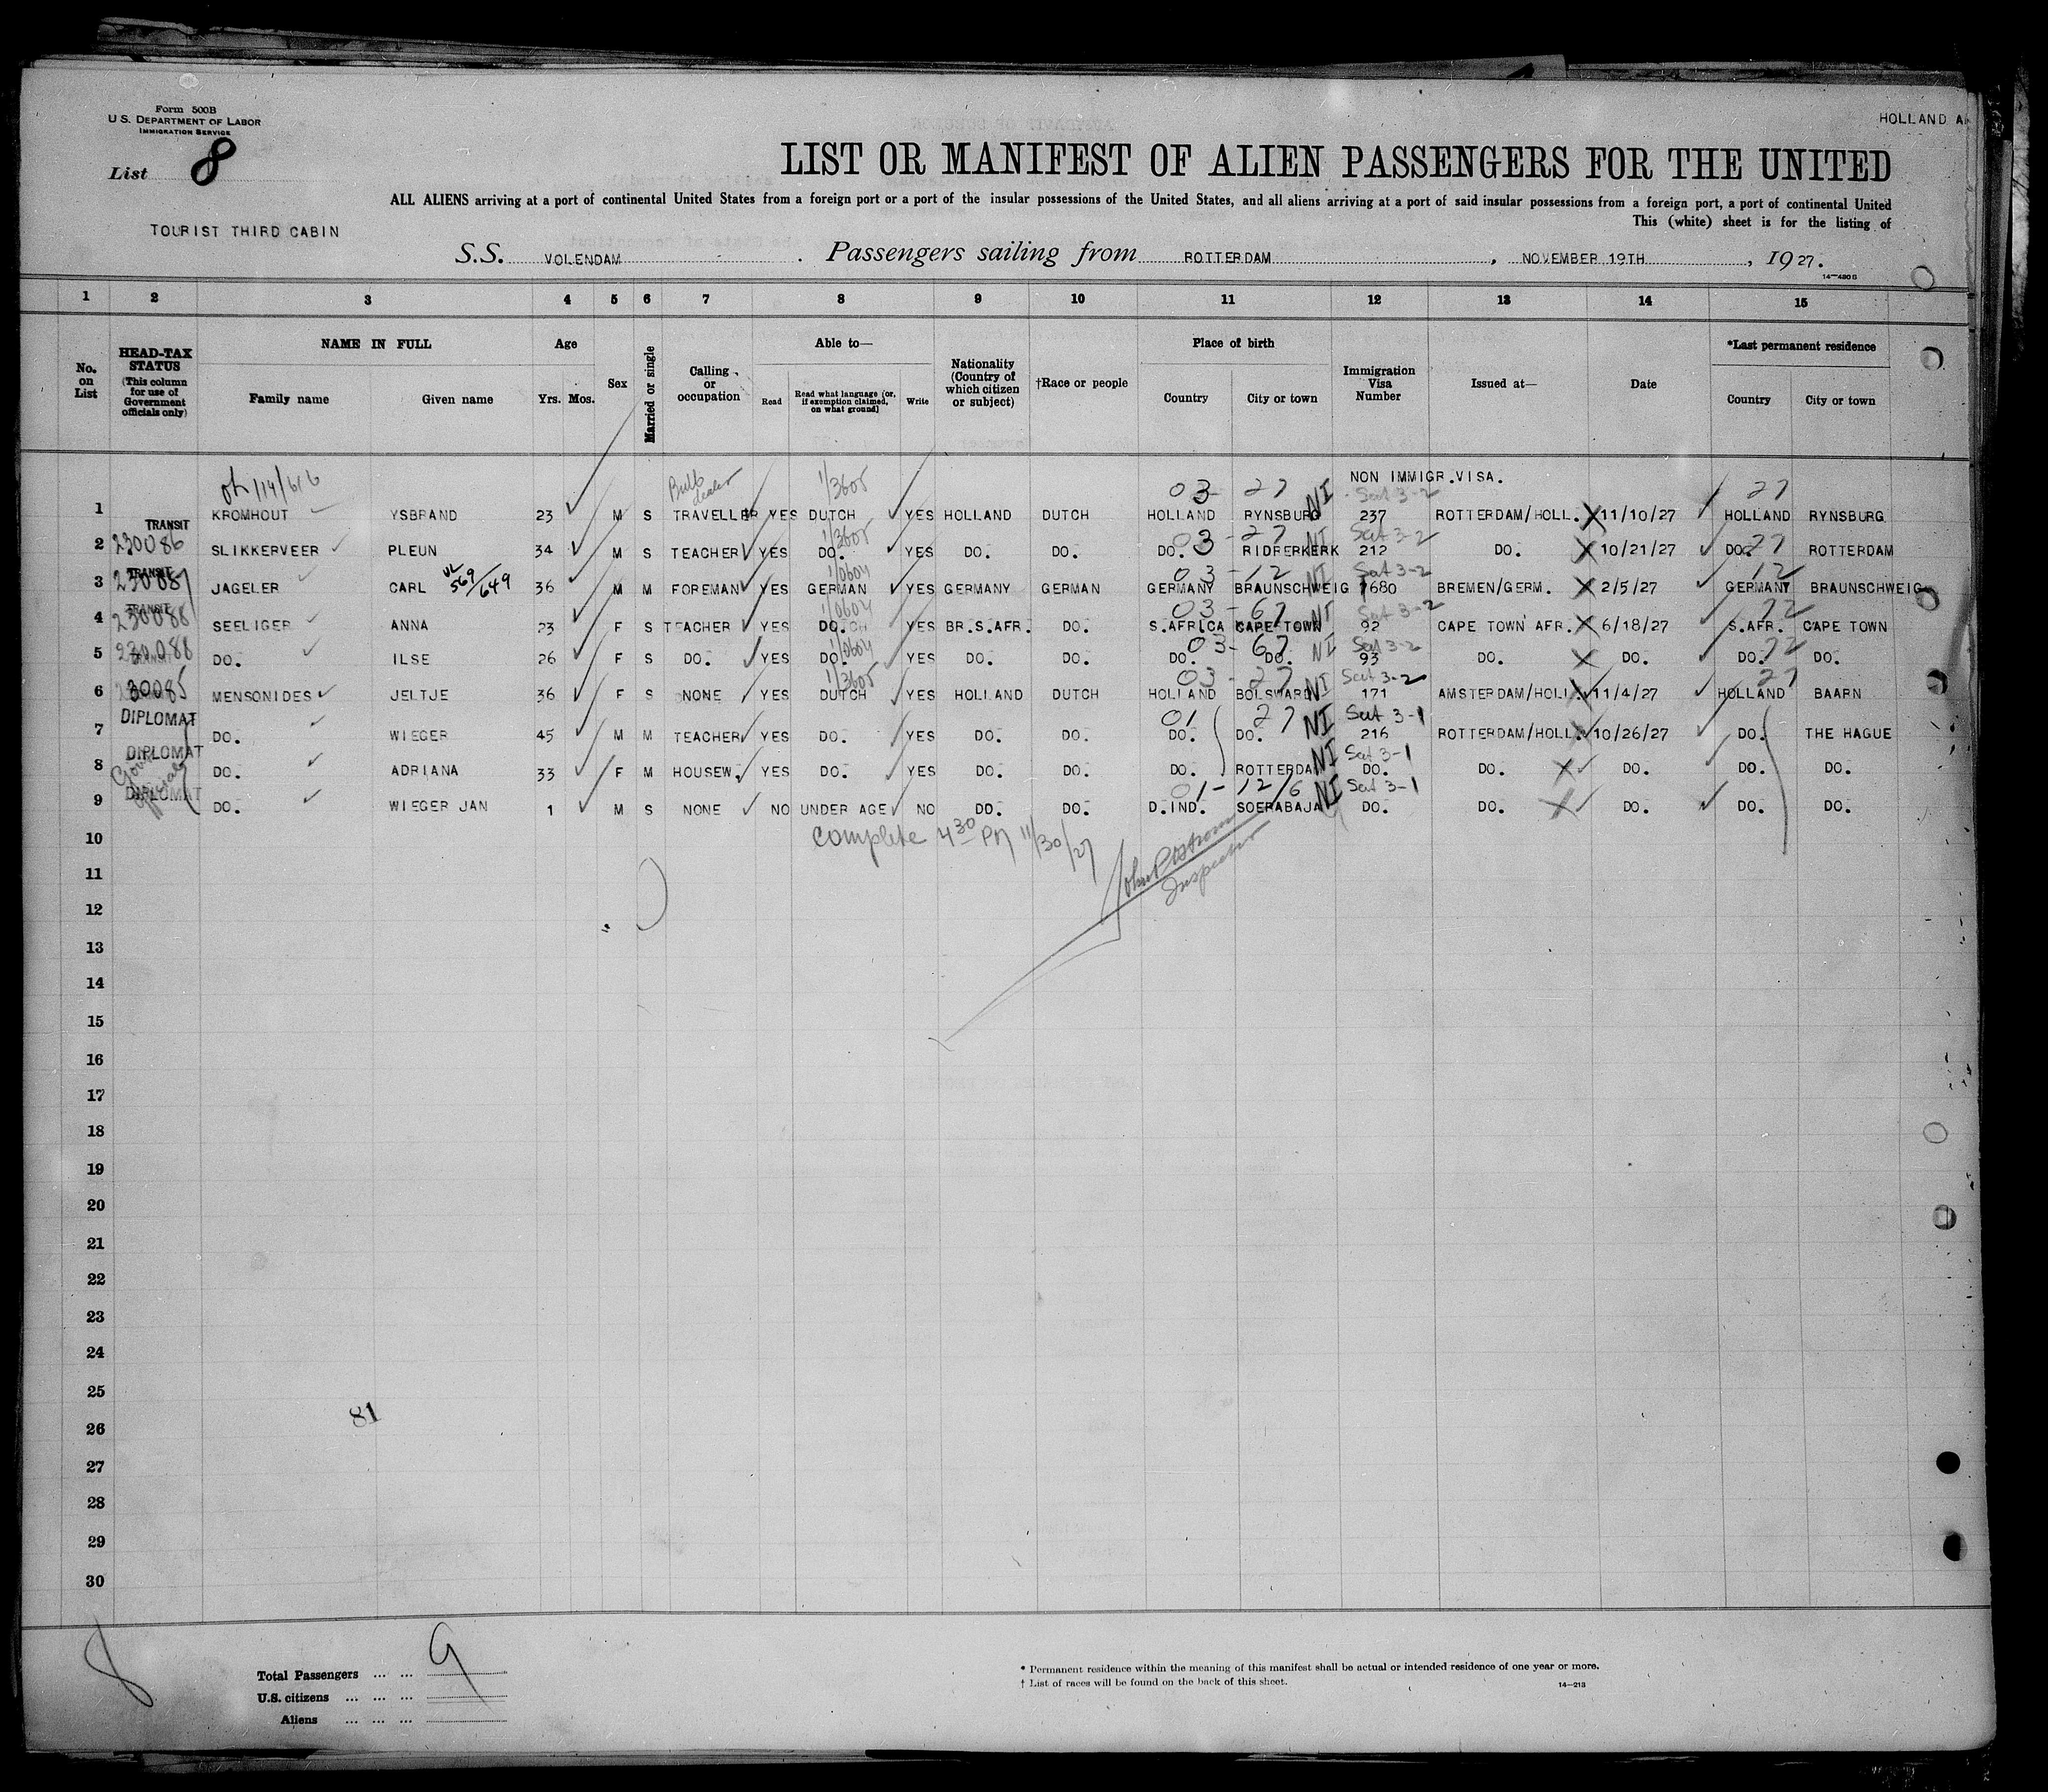 Form 500B
U.S. DEPARTMENT OF LABOR
IMMIGRATION SERVICE
HOLLAND A
List 8
LIST OR MANIFEST OF ALIEN PASSENGERS FOR THE UNITED
ALL ALIENS arriving at a port of continental United States from a foreign port or a port of the insular possessions of the United States, and all aliens arriving at a port of said insular possessions from a foreign port, a port of continental United
This (white) sheet is for the listing of
TOURIST THIRD CABIN
S.S. VOLENDAM . Passengers sailing from ROTTERDAM , NOVEMBER 19TH , 1927.
1 2 3 4 5 6 7 8 9 10 11 12 13 14 15
No. on List
HEAD-TAX STATUS (This column for use of Government officials only)
NAME IN FULL Family name Given name
Age Yrs. Mos.
Sex
Married or single
Calling or occupation
Able to— Read Read what language (or, if exemption claimed, on what ground) Write
Nationality (Country of which citizen or subject)
†Race or people
Place of birth Country City or town
Immigration Visa Number
Issued at—
Date
*Last permanent residence Country City or town
NON IMMIGR.VISA.
114/616 Bulb dealer 1/3605 03- 27 NI Sect 3-2 27
1 KROMHOUT YSBRAND 23 M S TRAVELLER YES DUTCH YES HOLLAND DUTCH HOLLAND RYNSBURG 237 ROTTERDAM/HOLL. 11/10/27 HOLLAND RYNSBURG
TRANSIT 230086 1/3605 03-27 NI Sect 3-2 27
2 SLIKKERVEER PLEUN 34 M S TEACHER YES DO. YES DO. DO. DO. RIDFERKERK 212 DO. 10/21/27 DO. ROTTERDAM
TRANSIT 230087 569/649 1/0604 03-12 NI Sect 3-2 12
3 JAGELER CARL 36 M M FOREMAN YES GERMAN YES GERMANY GERMAN GERMANY BRAUNSCHWEIG 7680 BREMEN/GERM. 2/5/27 GERMANY BRAUNSCHWEIG
TRANSIT 230088 1/0604 03-67 NI Sect 3-2 72
4 SEELIGER ANNA 23 F S TEACHER YES DO. YES BR.S.AFR. DO. S.AFRICA CAPE TOWN 92 CAPE TOWN AFR. 6/18/27 S.AFR. CAPE TOWN
230088 1/0604 03-67 NI Sect 3-2 72
5 DO. ILSE 26 F S DO. YES DO. YES DO. DO. DO. DO. 93 DO. DO. DO. DO.
30085 1/3605 03-27 NI Sect 3-2 27
6 MENSONIDES JELTJE 36 F S NONE YES DUTCH YES HOLLAND DUTCH HOLLAND BOLSWARD 171 AMSTERDAM/HOLL. 11/4/27 HOLLAND BAARN
DIPLOMAT 01 27 NI Sect 3-1
7 DO. WIEGER 45 M M TEACHER YES DO. YES DO. DO. DO. DO. 216 ROTTERDAM/HOLL. 10/26/27 DO. THE HAGUE
DIPLOMAT NI Sect 3-1
8 DO. ADRIANA 33 F M HOUSEW. YES DO. YES DO. DO. DO. ROTTERDAM DO. DO. DO. DO. DO.
DIPLOMAT 01-12/6 NI Sect 3-1
9 DO. WIEGER JAN 1 M S NONE NO UNDER AGE NO DO. DO. D.IND. SOERABAJA DO. DO. DO. DO. DO.
complete 4 30 PM 11/30/27
Inspector
10
11
12
13
14
15
16
17
18
19
20
21
22
23
24
25
81
26
27
28
29
30
8
Total Passengers ... ... 9
U.S. citizens ... ... ...
Aliens ... ... ...
* Permanent residence within the meaning of this manifest shall be actual or intended residence of one year or more.
† List of races will be found on the back of this sheet.
14—213